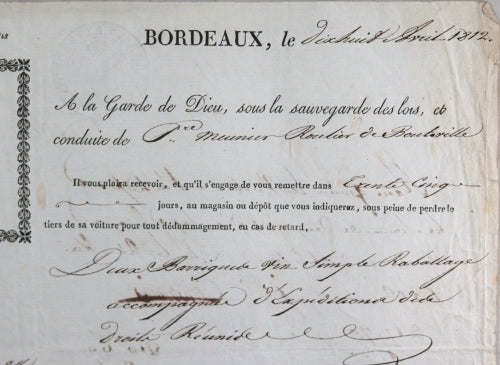 BORDEAUX, le dixhuit Avril 1812.
A la Garde de Dieu, sous la sauvegarde des lois, et
conduite de P.re meunier Roulier de Bouteville
Il vous plaira recevoir, et qu'il s'engage de vous remettre dans Trente Cinq
jours, au magasin ou dépôt que vous indiquerez, sous peine de perdre le
tiers de sa voiture pour tout dédommagement, en cas de retard,
Deux Barriques vin Simple Rabattage
accompagné d'Expéditions de
Droits Réunis